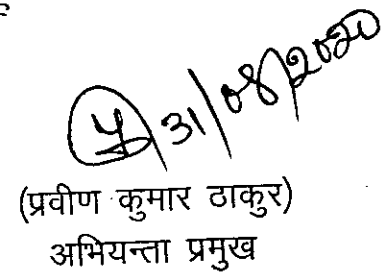 31/08/2020
(प्रवीण कुमार ठाकुर)
अभियन्ता प्रमुख